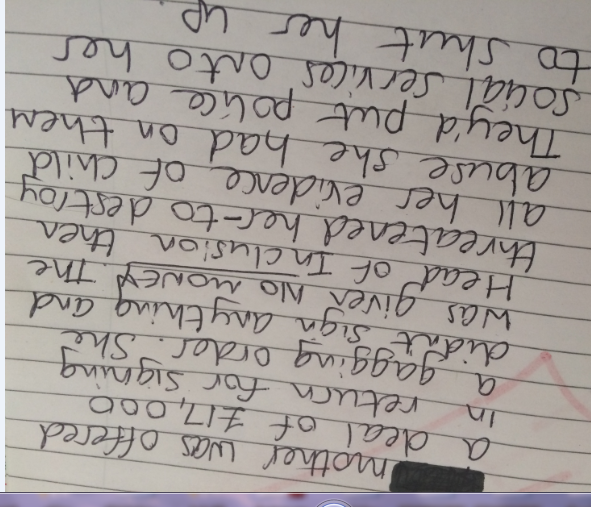 mother was offered
a deal of £17,000
in return for signing
a gagging order. She
didn't sign anything and
was given NO MONEY. The
Head of Inclusion then
threatened her - to destroy
all her evidence of child
abuse she had on them
They'd put police and
social services onto her
to shut her up.